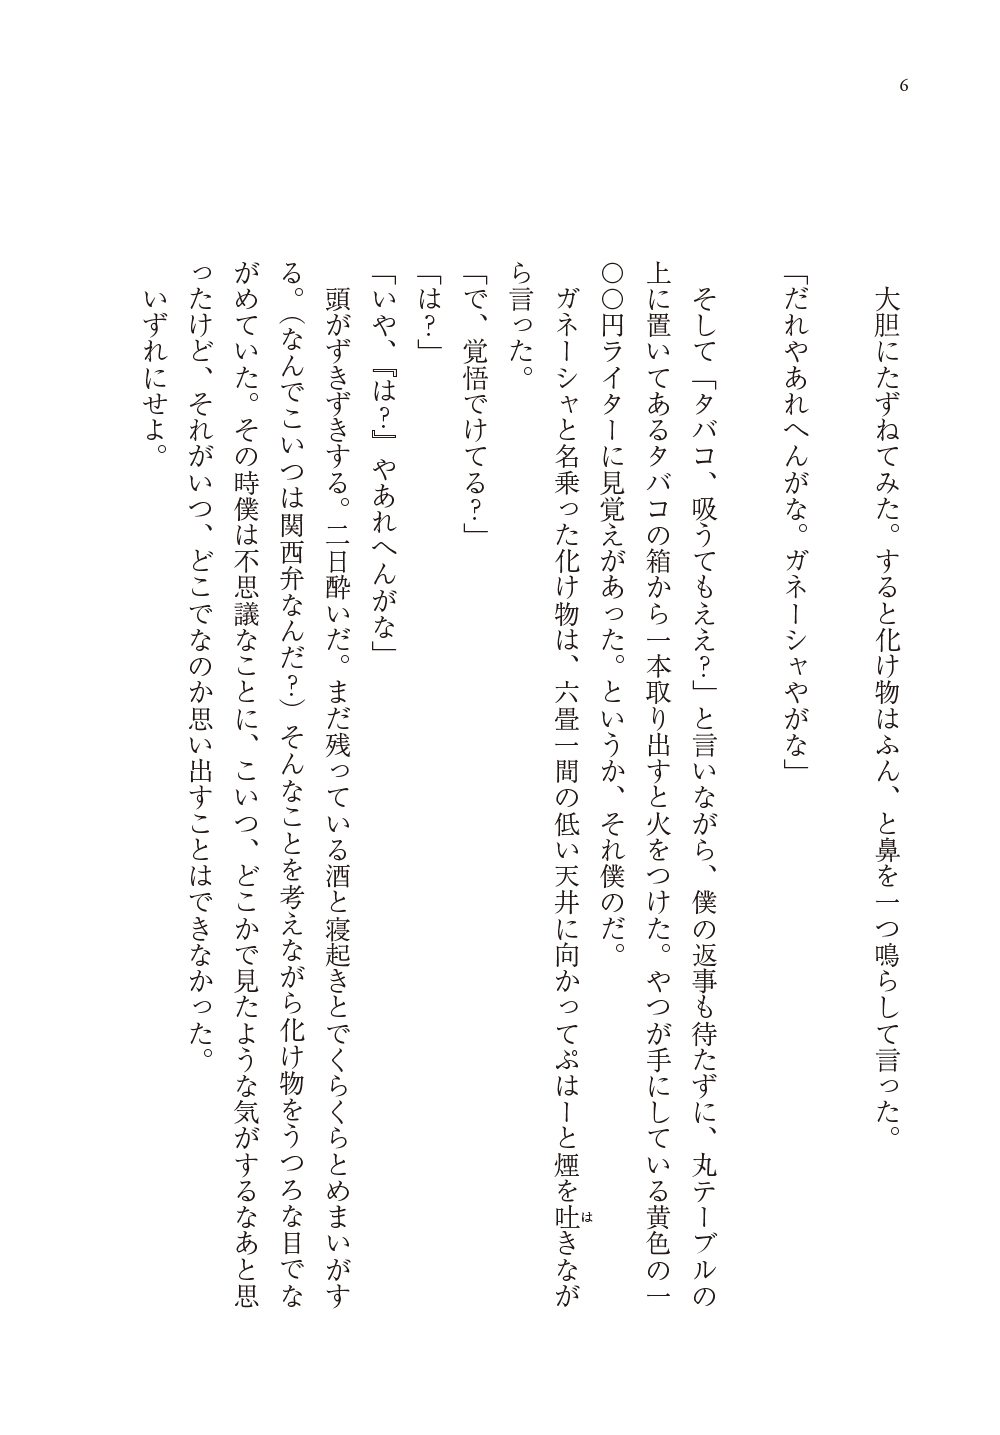 6
大胆にたずねてみた。すると化け物はふん、と鼻を一つ鳴らして言った。
「だれやあれへんがな。ガネーシャやがな」
そして「タバコ、吸うてもええ?」と言いながら、僕の返事も待たずに、丸テーブルの
上に置いてあるタバコの箱から一本取り出すと火をつけた。やつが手にしている黄色の一
〇〇円ライターに見覚えがあった。というか、それ僕のだ。
ガネーシャと名乗った化け物は、六畳一間の低い天井に向かってぷはーと煙を吐きなが
は
ら言った。
「で、覚悟でけてる?」
「は?」
「いや、『は?』やあれへんがな」
頭がずきずきする。二日酔いだ。まだ残っている酒と寝起きとでくらくらとめまいがす
る。（なんでこいつは関西弁なんだ?）そんなことを考えながら化け物をうつろな目でな
がめていた。その時僕は不思議なことに、こいつ、どこかで見たような気がするなあと思
ったけど、それがいつ、どこでなのか思い出すことはできなかった。
いずれにせよ。